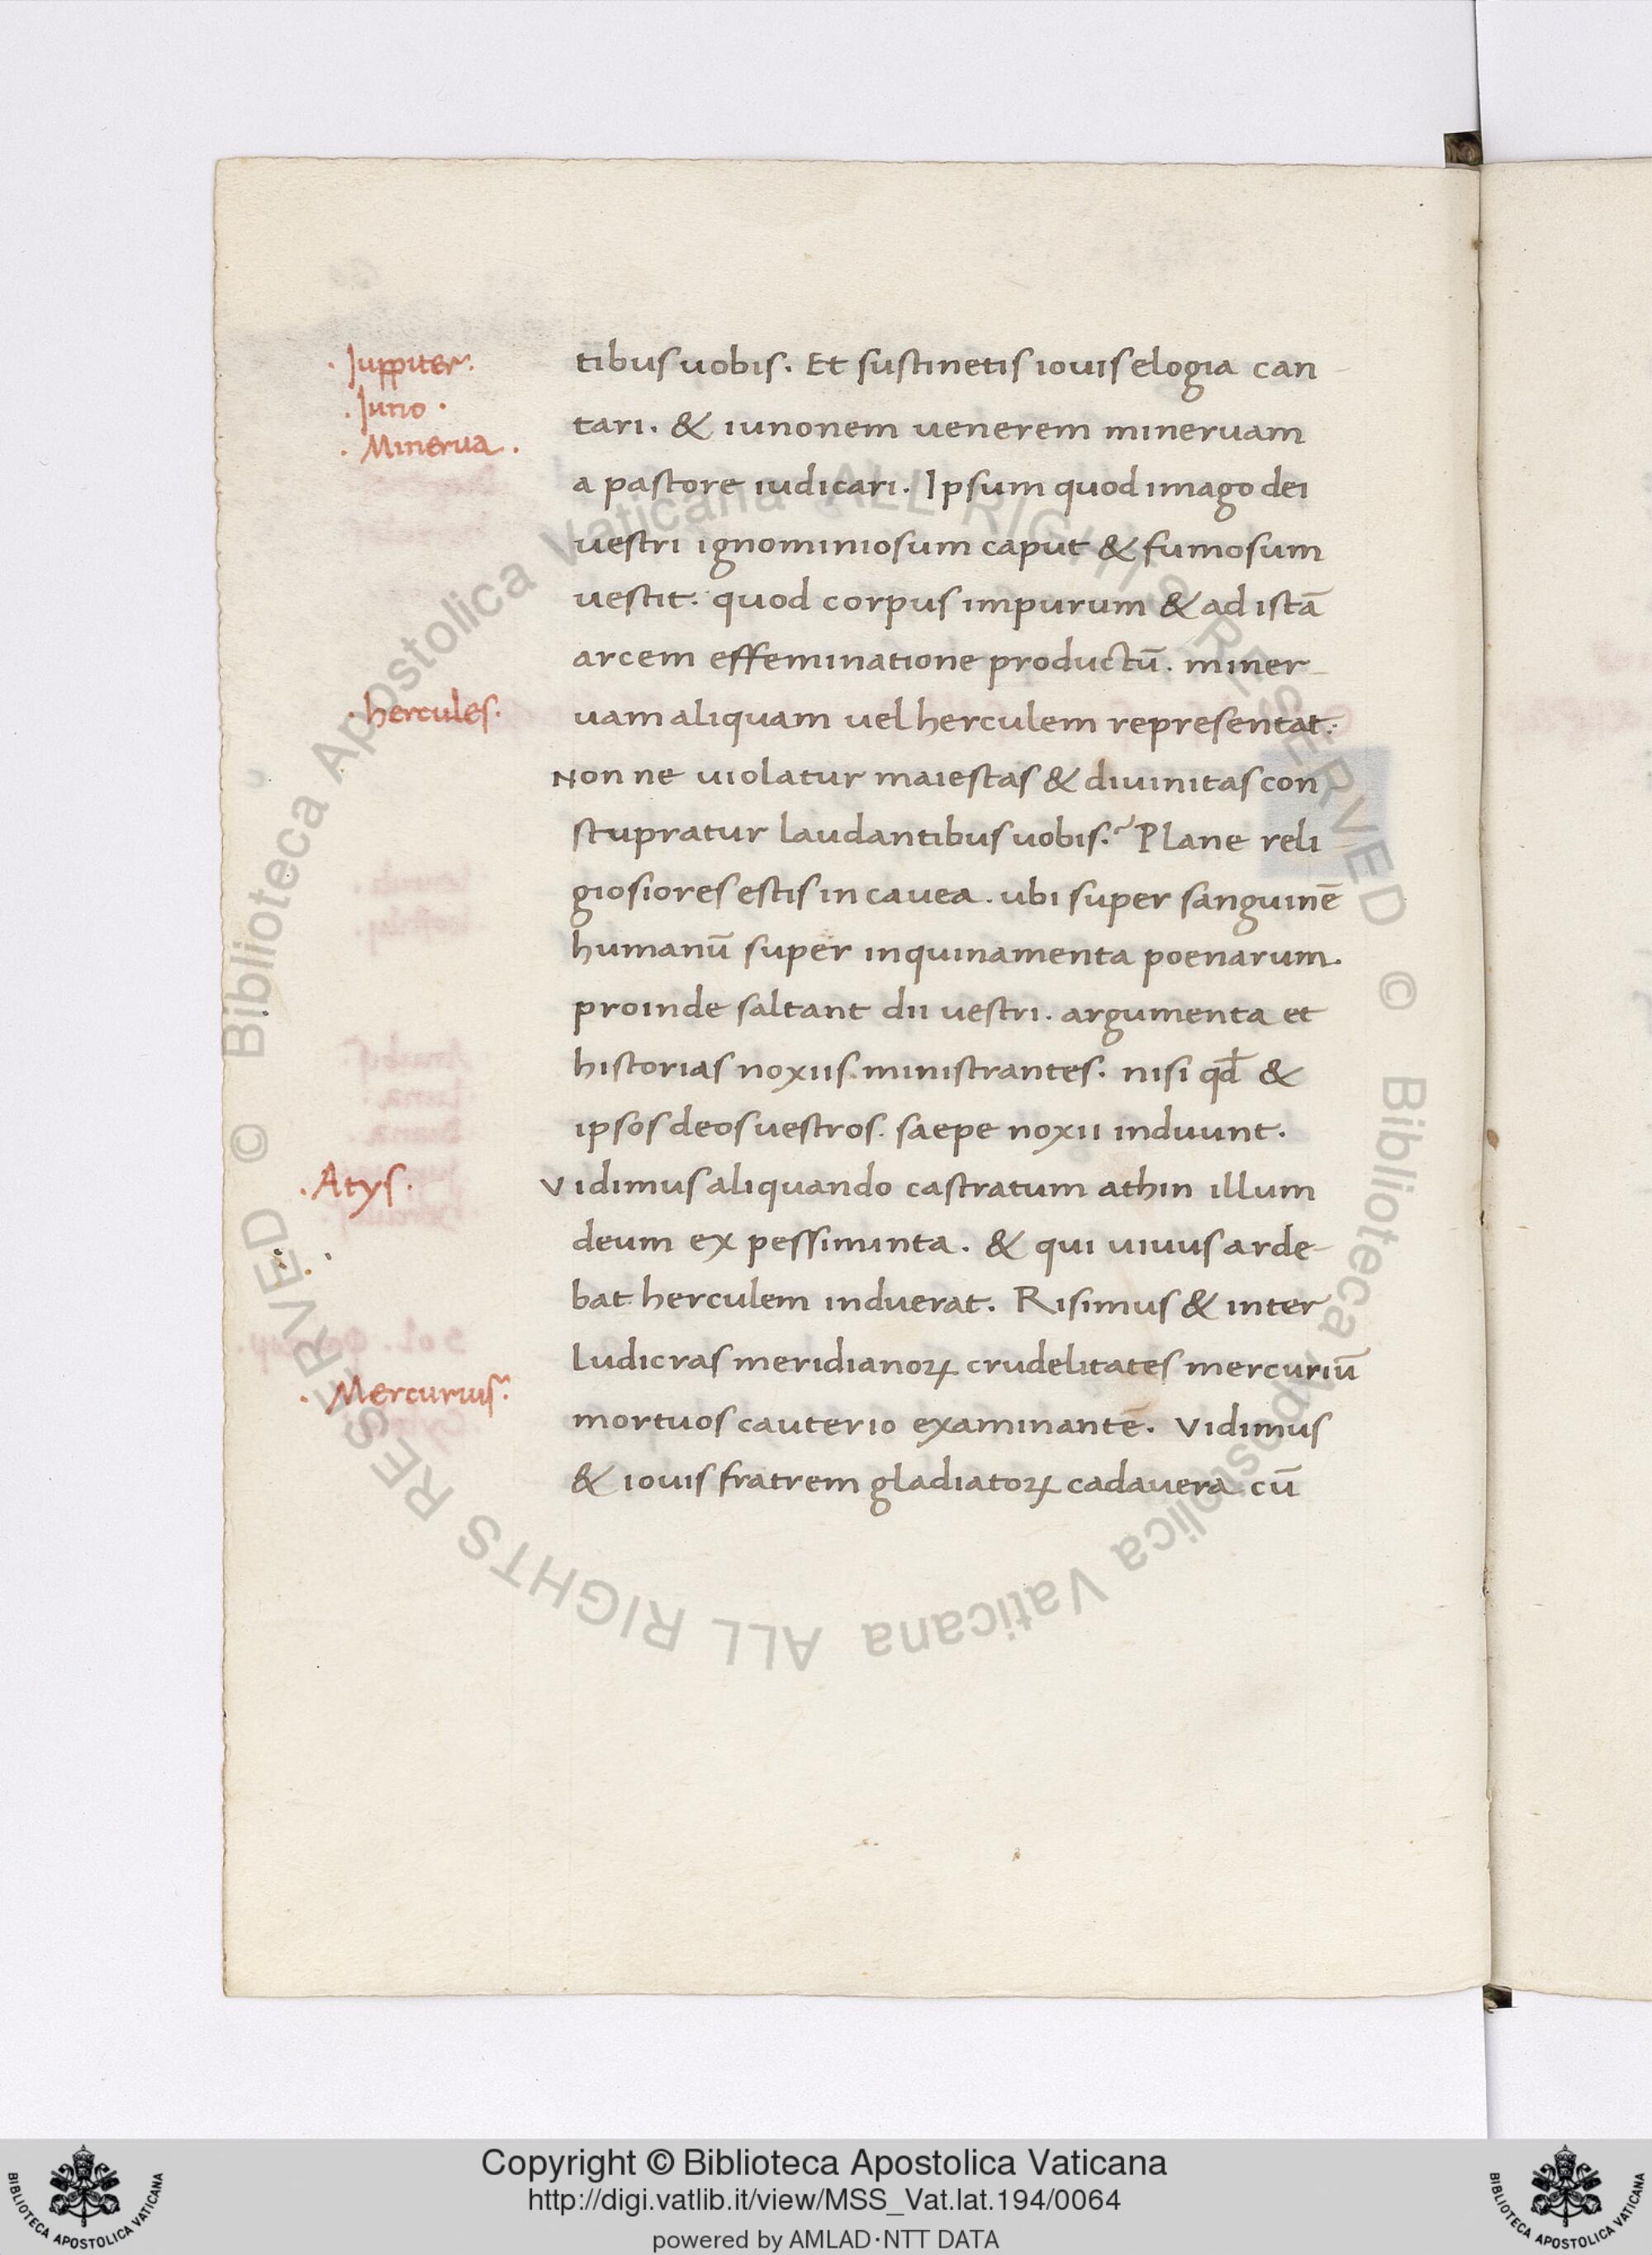 · Iuppiter ·
· Iuno ·
· Minerva ·
tibus uobis. Et sustinetis iouis elogia can
tari. & iunonem uenerem mineruam
a pastore iudicari. Ipsum quod imago dei
uestri ignominiosum caput & fumosum
uestit. quod corpus impurum & ad istā
arcem effeminatione productū. miner
· hercules ·
uam aliquam uel herculem representat.
Non ne uiolatur maiestas & diuinitas con
stupratur laudantibus uobis? Plane reli
giosiores estis in cauea. ubi super sanguinē
humanū super inquinamenta poenarum.
proinde saltant dii uestri. argumenta et
historias noxiis ministrantes. nisi qđ &
ipsos deos uestros. saepe noxii induunt.
· Atys ·
Vidimus aliquando castratum athin illum
deum ex pessiminta. & qui uiuus arde-
bat herculem induerat. Risimus & inter
ludicras meridianoꝝ crudelitates mercuriū
· Mercurius ·
mortuos cauterio examinantē. Vidimus
& iouis fratrem gladiatoꝝ cadauera cū
© Biblioteca Apostolica Vaticana ALL RIGHTS RESERVED
© Biblioteca Apostolica Vaticana ALL RIGHTS RESERVED
Copyright © Biblioteca Apostolica Vaticana
http://digi.vatlib.it/view/MSS_Vat.lat.194/0064
powered by AMLAD·NTT DATA
BIBLIOTECA APOSTOLICA VATICANA
BIBLIOTECA APOSTOLICA VATICANA